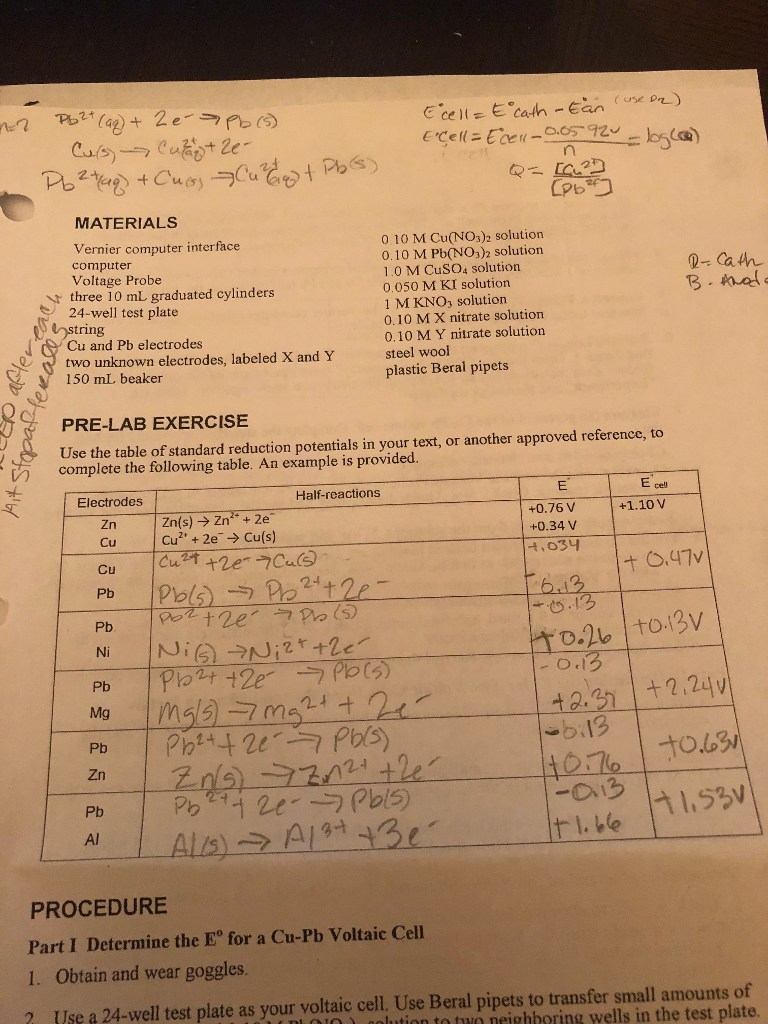 Pb²⁺(aq) + 2e⁻ → Pb(s)
Cu(s) → Cu²⁺(aq) + 2e⁻
Pb²⁺(aq) + Cu(s) → Cu²⁺(aq) + Pb(s)
E°cell = E°cath - E°an (use D2)
E°Cell = E°cell - 0.0592v / n = log(Q)
Q = [Cu²⁺] / [Pb²⁺]
MATERIALS
Vernier computer interface
computer
Voltage Probe
three 10 mL graduated cylinders
24-well test plate
string
Cu and Pb electrodes
two unknown electrodes, labeled X and Y
150 mL beaker
0.10 M Cu(NO₃)₂ solution
0.10 M Pb(NO₃)₂ solution
1.0 M CuSO₄ solution
0.050 M KI solution
1 M KNO₃ solution
0.10 M X nitrate solution
0.10 M Y nitrate solution
steel wool
plastic Beral pipets
PRE-LAB EXERCISE
Use the table of standard reduction potentials in your text, or another approved reference, to
complete the following table. An example is provided.
Electrodes Half-reactions E° E°cell
Zn Zn(s) → Zn²⁺ + 2e⁻ +0.76 V +1.10 V
Cu Cu²⁺ + 2e⁻ → Cu(s) +0.34 V
Cu Cu²⁺ + 2e⁻ → Cu(s) +.034 + 0.47v
Pb Pb(s) → Pb²⁺ + 2e⁻ 0.13
Pb Pb² + 2e⁻ → Pb(s) -0.13 +0.13V
Ni Ni(s) → Ni²⁺ + 2e⁻ +0.26
Pb Pb²⁺ + 2e⁻ → Pb(s) -0.13 +2.24V
Mg Mg(s) → mg²⁺ + 2e⁻ +2.37
Pb Pb²⁺ + 2e⁻ → Pb(s) -0.13 +0.63v
Zn Zn(s) → Zn²⁺ + 2e⁻ +0.76
Pb Pb²⁺ + 2e⁻ → Pb(s) -0.13 +1.53V
Al Al(s) → Al³⁺ + 3e⁻ +1.66
PROCEDURE
Part I Determine the E° for a Cu-Pb Voltaic Cell
1. Obtain and wear goggles.
2. Use a 24-well test plate as your voltaic cell. Use Beral pipets to transfer small amounts of
solution to two neighboring wells in the test plate.